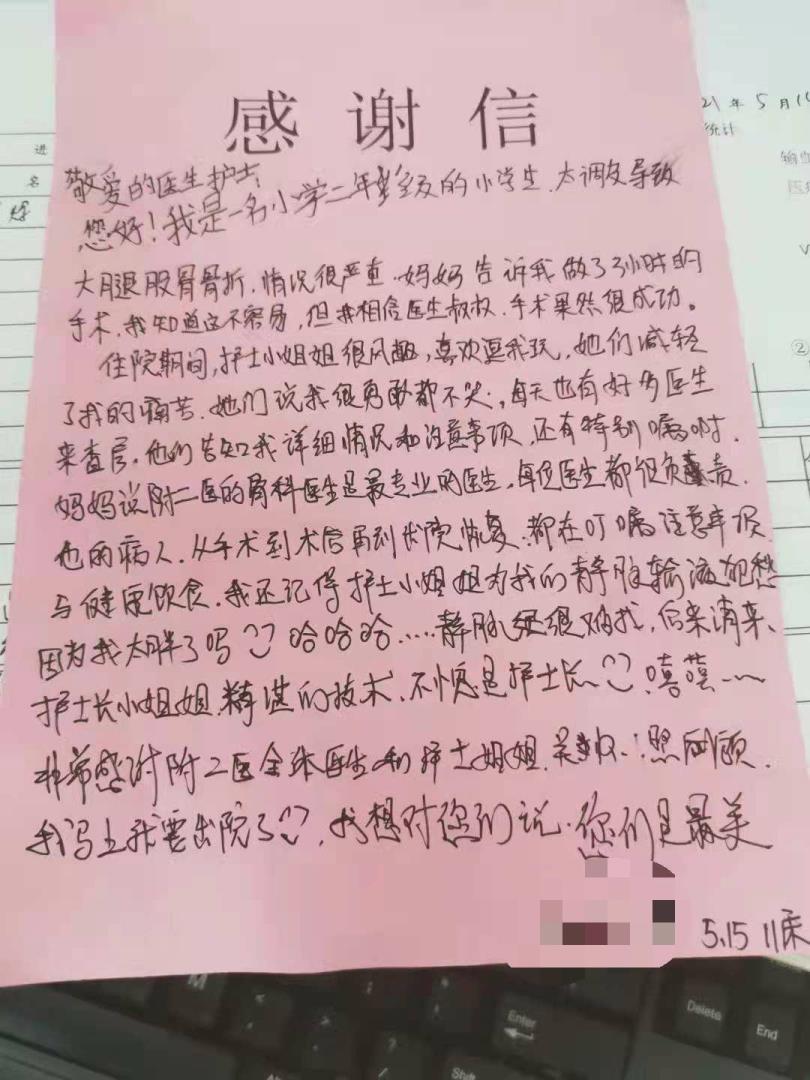 感谢信
敬爱的医生护士:
您好!我是一名小学二年级的小学生.太调皮导致
大腿股骨骨折,情况很严重.妈妈告诉我做了3小时的
手术.我知道这不容易,但我相信医生叔叔.手术果然很成功。
住院期间,护士小姐姐很风趣,喜欢逗我玩,她们减轻
了我的痛苦.她们说我很勇敢都不哭.每天也有好多医生
来查房.他们告知我详细情况和注意事项,还有特别嘱咐.
妈妈说附二医的骨科医生是最专业的医生,每位医生都很负责
他的病人.从手术到术后再到出院恢复.都在叮嘱注意事项
与健康饮食.我还记得护士小姐姐为我的静脉输液犯愁
因为我太胖了吗 哈哈哈.....静脉很难找,后来请来
护士长小姐姐.精湛的技术.不愧是护士长 嘻嘻~~
非常感谢附二医全体医生和护士姐姐.照顾.
我马上就要出院了.我想对您们说.您们是最美
5.15 11床
21年5月1
统计
进
名
②
M
Enter
Delete
End
Shift